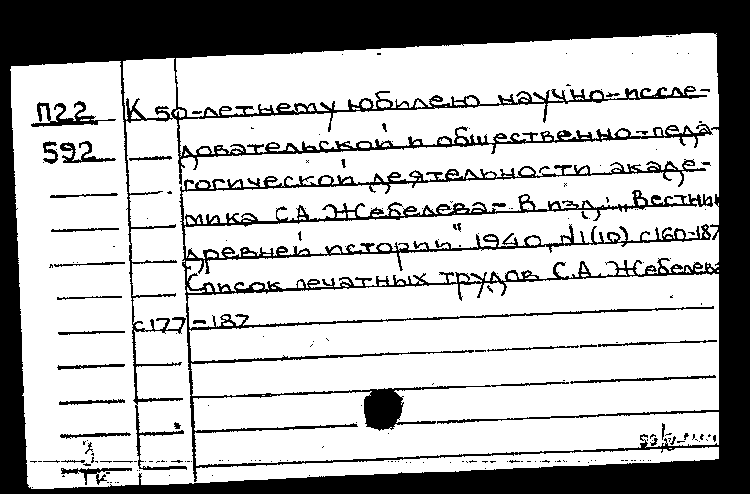 П22 К 50-летнему юбилею научно-иссле-
592 довательской и общественно-педа-
гогической деятельности акаде-
мика С.А. Жебелева.- В изд.: „Вестник
древней истории" 1940, №1(10) с160-187
Список печатных трудов С.А. Жебелева
с177-187
З
ТК